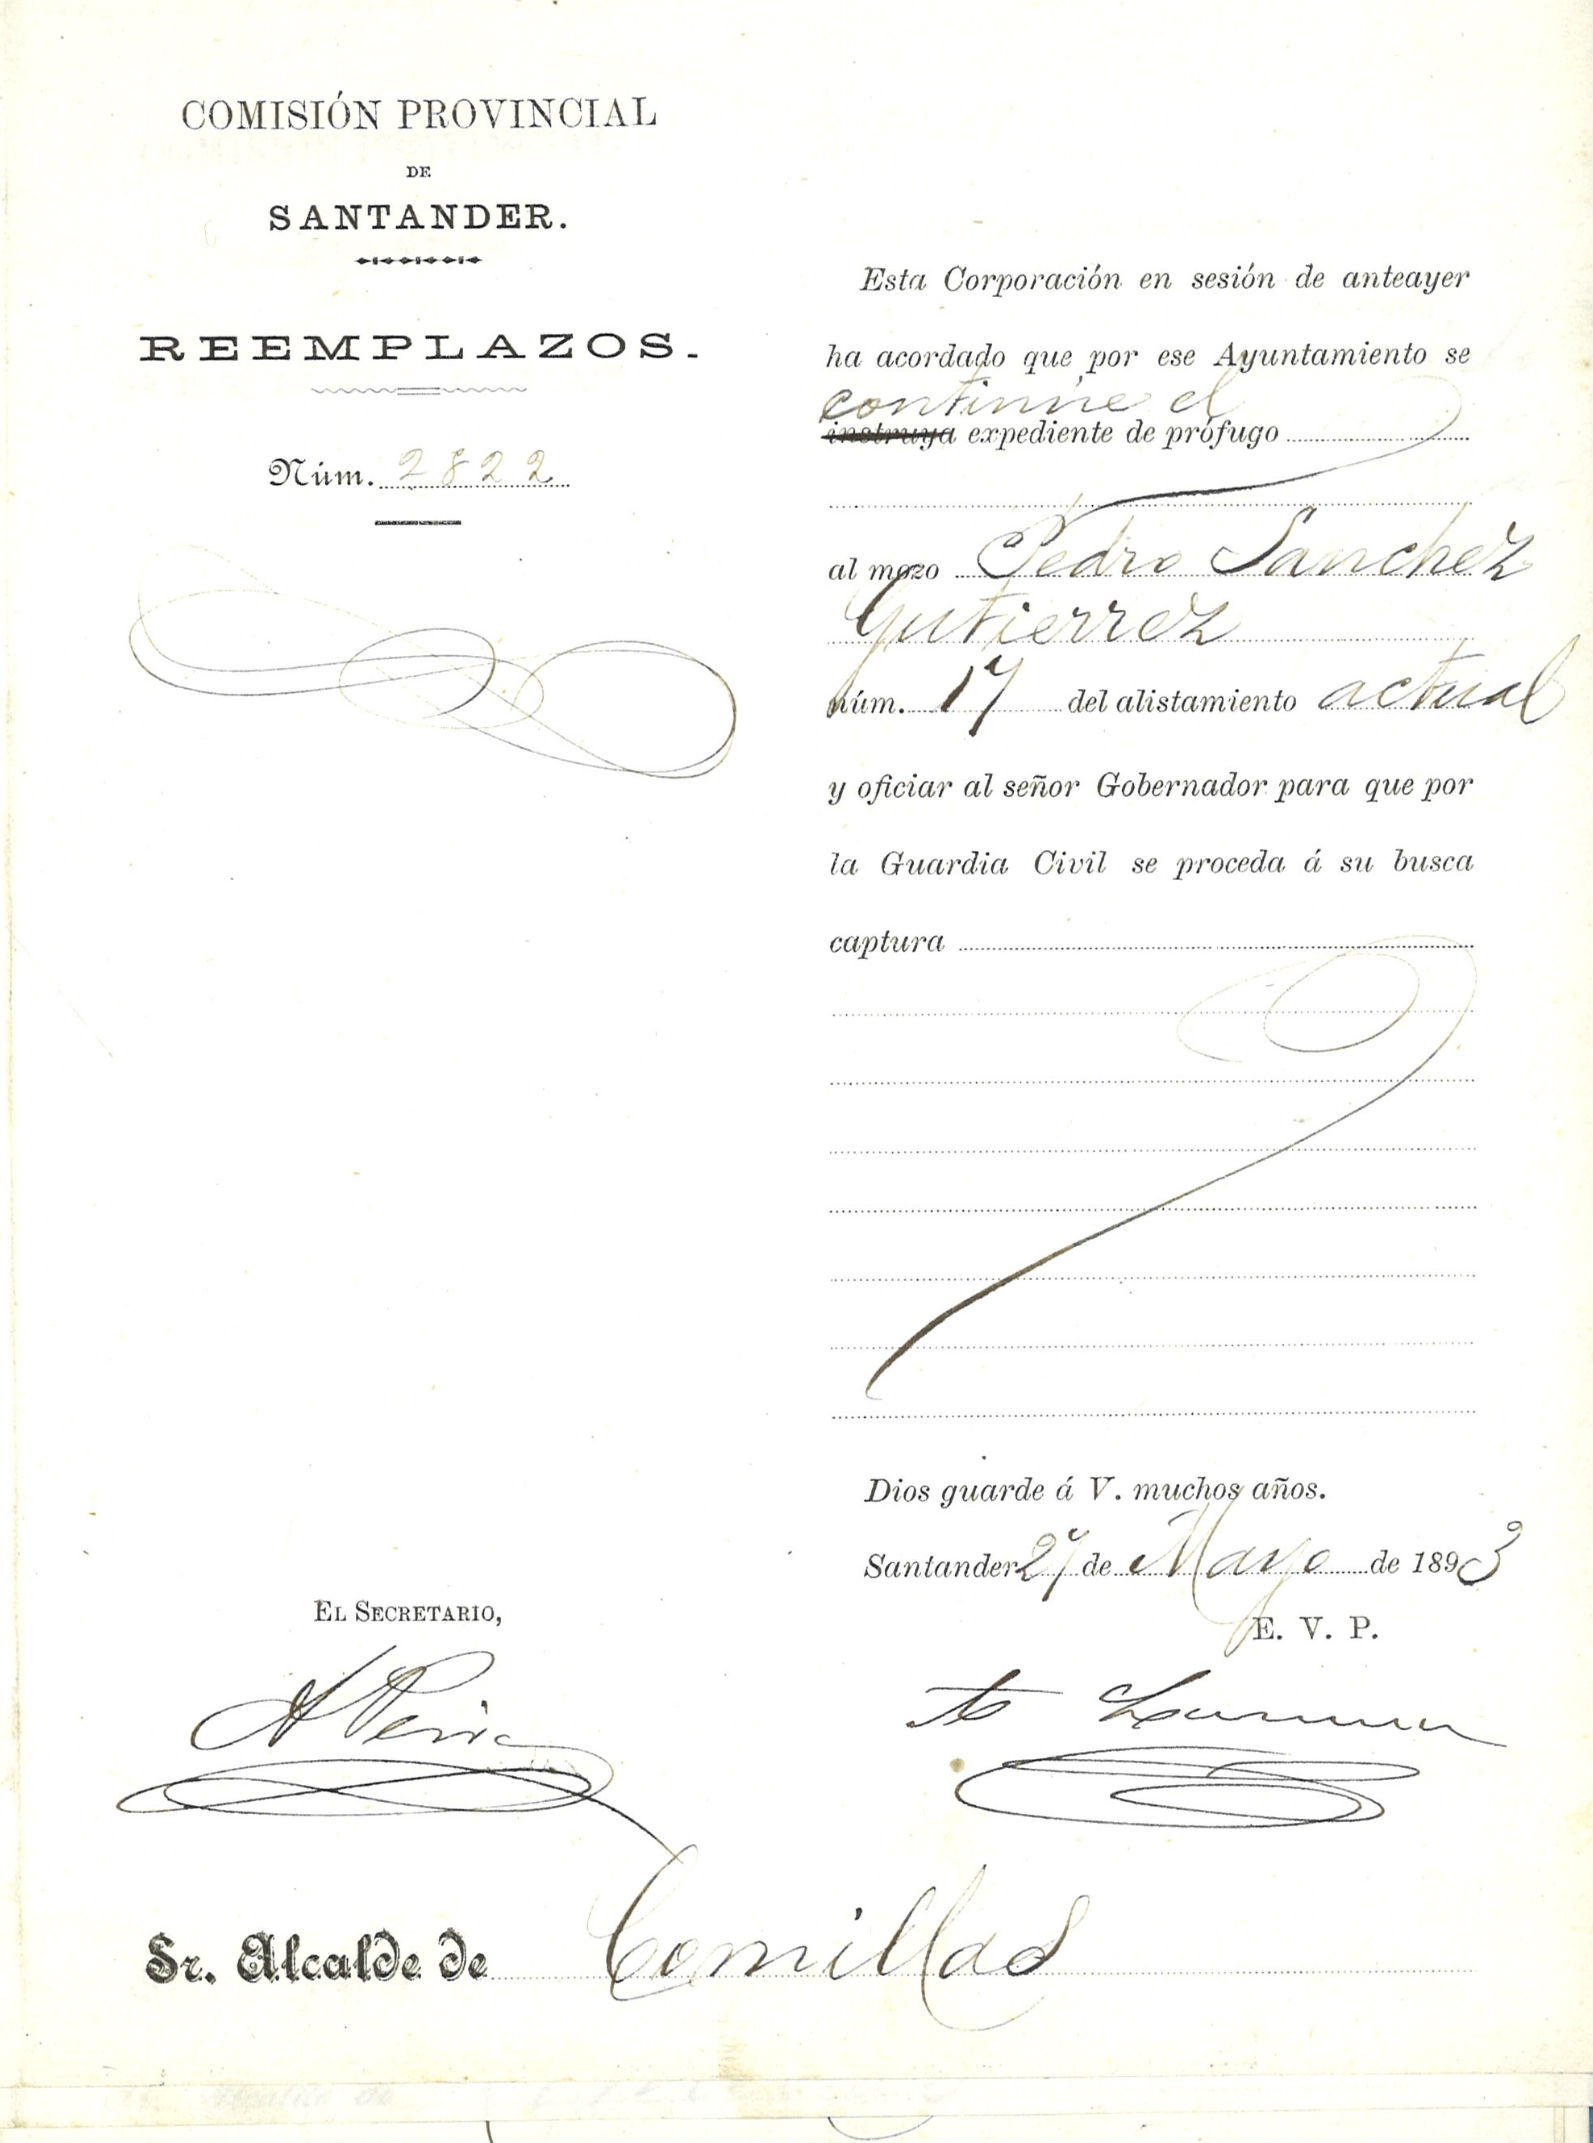 COMISIÓN PROVINCIAL
DE
SANTANDER.
REEMPLAZOS.
Núm. 2822
Esta Corporación en sesión de anteayer
ha acordado que por ese Ayuntamiento se
continúe el
instruya expediente de prófugo
al mozo Pedro Sanchez
Gutierrez
núm. 17 del alistamiento actual
y oficiar al señor Gobernador para que por
la Guardia Civil se proceda á su busca
captura
Dios guarde á V. muchos años.
Santander 27 de Mayo de 1893
E. V. P.
EL SECRETARIO,
Sr. Alcalde de Comillas